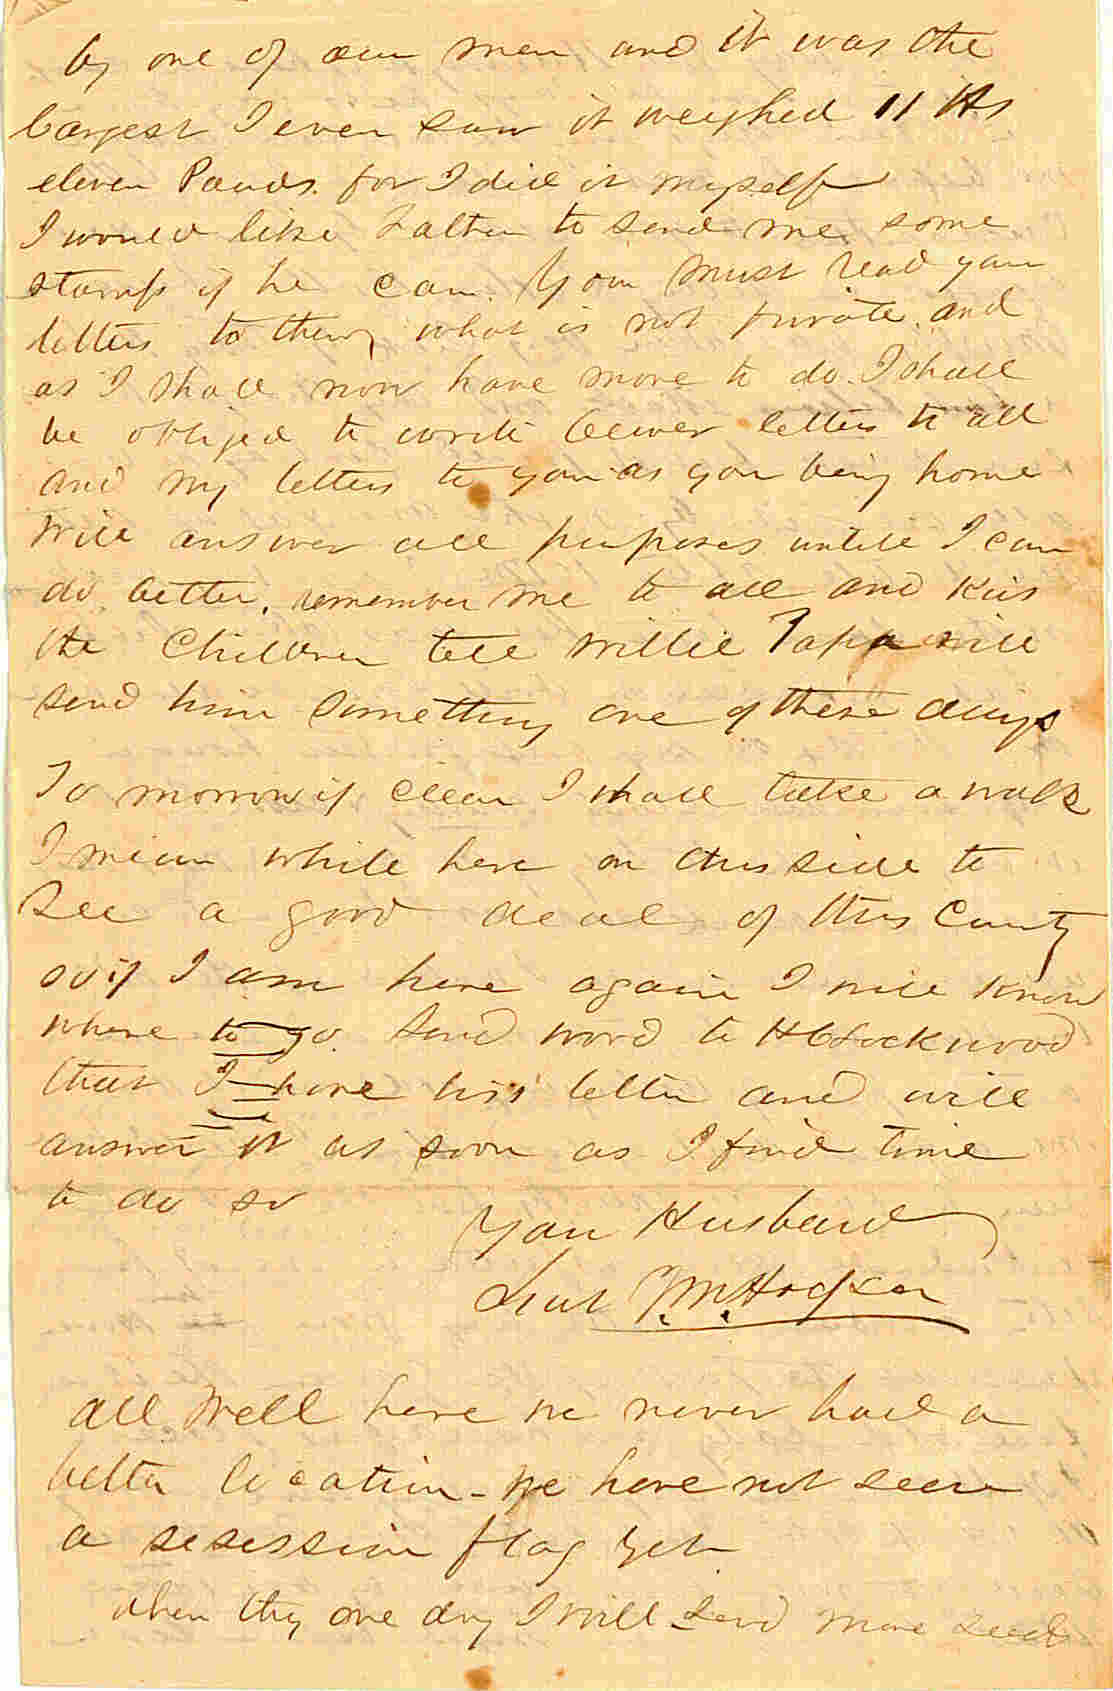 by one of our men and it was the
largest I ever saw it weighed 11 lbs
eleven Pounds. for I did it myself
I would like Father to send me some
stamps if he can. You must read your
letters to them, what is not private. and
as I shall now have more to do. I shall
be obliged to write fewer letters to all
and my letters to you as you being home
will answer all purposes untill I can
do better. remember me to all and Kiss
the Children tell Willie Papa will
send him something one of these days
To morrow if clear I shall take a walk
I mean while here on this side to
See a good deal of this County
so if I am here again I will know
where to go. Send word to Lockwood
that I have his letter and will
answer it as soon as I find time
to do so
Your Husband
Lieut
all Well here we never had a
better location - We have not seen
a sesession flag yet
when they are dry I will send more seed